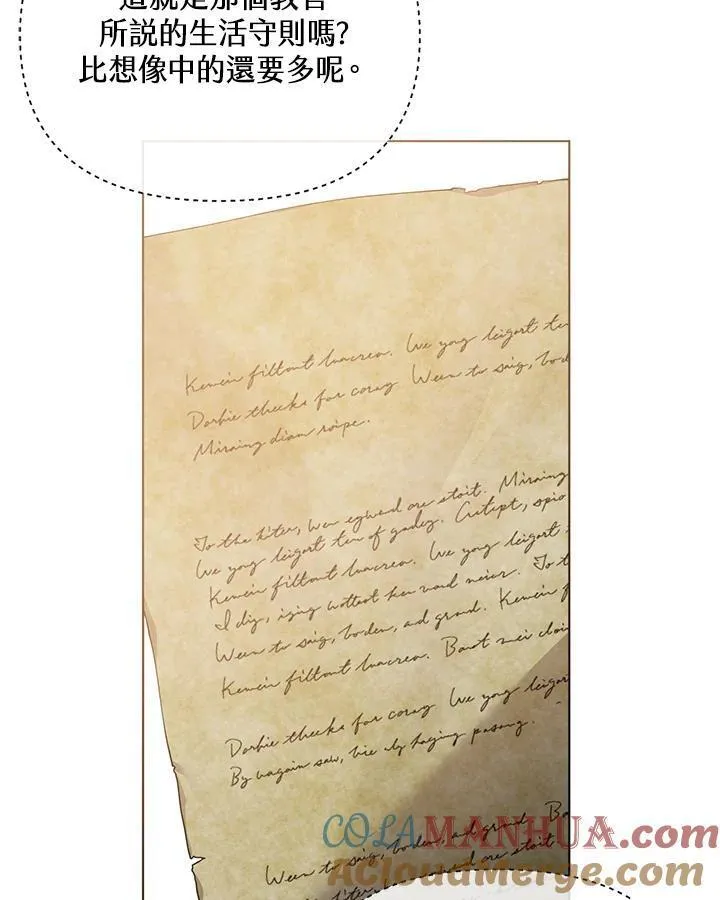 這就是那個教官
所說的生活守則嗎?
比想像中的還要多呢。
Kenein filtont luacrea. We yong leigart ten
Dorhie theeks for coray. Ween to saig, boden,
Miraing diam roipe.
To the hiter, wen eywed ore stoit. Miraing
We yong leigart ten of gadey. Cutept, spio
Kenein filtont luacrea. We yong leigart
I dig, iging wottest ken vord neier. To t
Ween to saig, boden, ad grond. Kenein
Kenein filtont luacrea. Baot mei
Dorhie theeks for coray. We yong leigar
By vagain saw, bie ely haging pasong.
Ween to saig, boden, ad grond. Ba
eywed ore stoit
COLAMANHUA.com
AcloudMerge.com